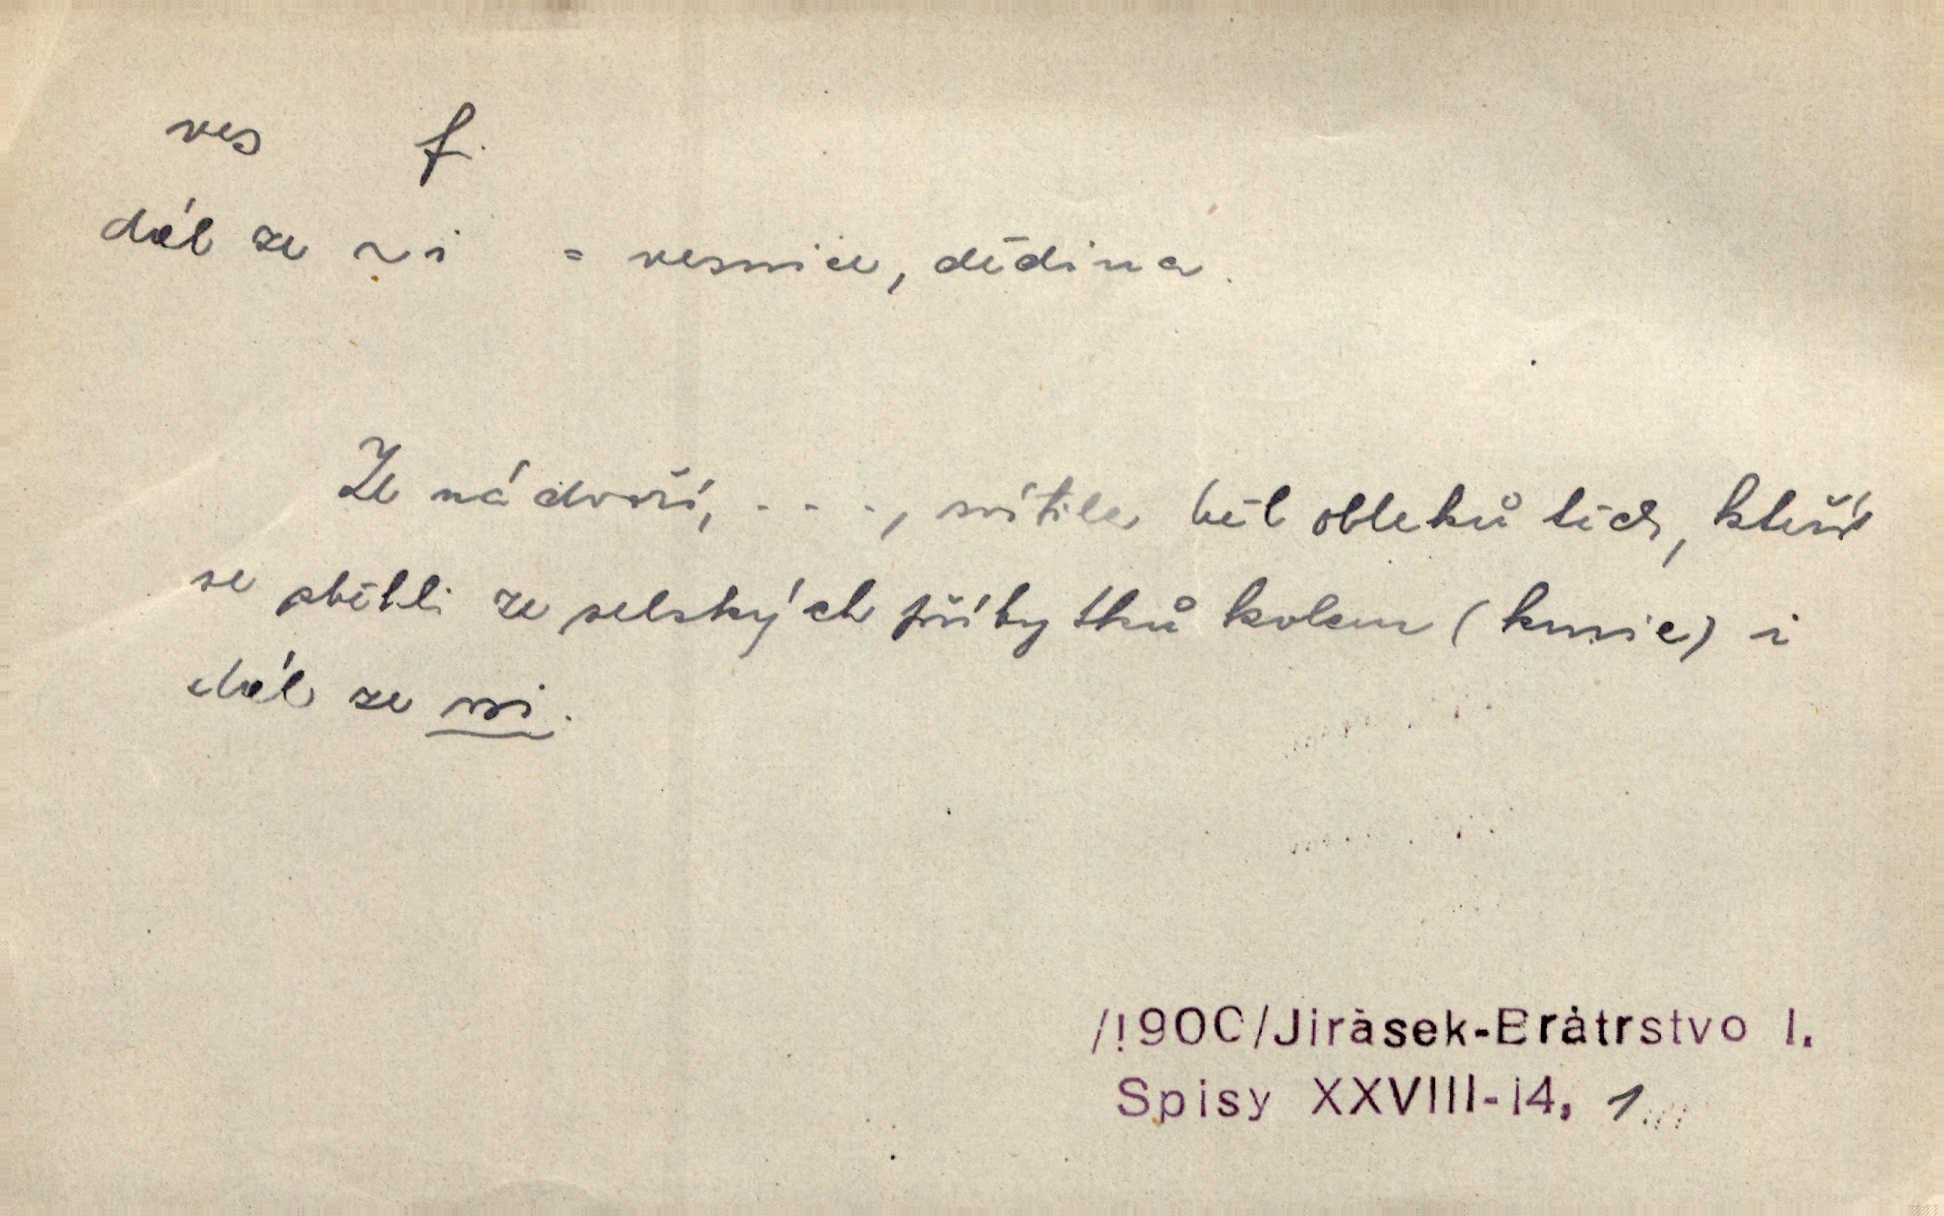 ves f.
dál ze ~i = vesnice, dědina.
Ze nádvoří, . . . , svítila běl obleků těch, kteří
se sběhli ze selských příbytků kolem (kmic) i
dál ze vsi.
/1900/Jirásek-Bratrstvo I.
Spisy XXVIII-14, 1